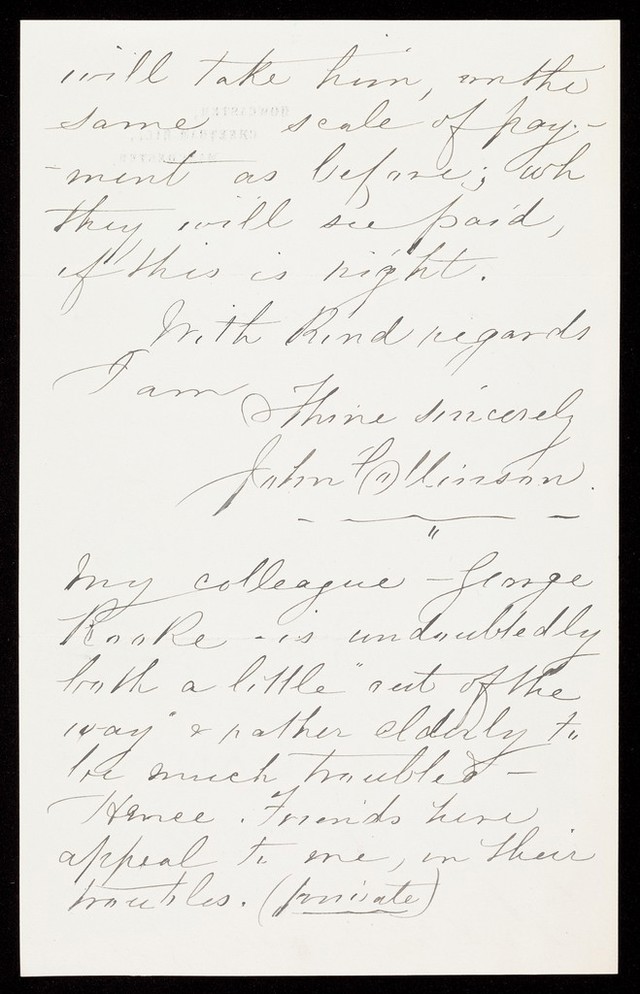 will take him, on the
same scale of pay-
-ment as before; wh
they will see paid,
if this is right.
With Kind regards
I am
Thine sincerely
John Rollinson.
"
My colleague - George
Rooke - is undoubtedly
both a little "out of the
way" & rather elderly to
be much troubled -
Hence Friends here
appeal to me, in their
troubles. (private)